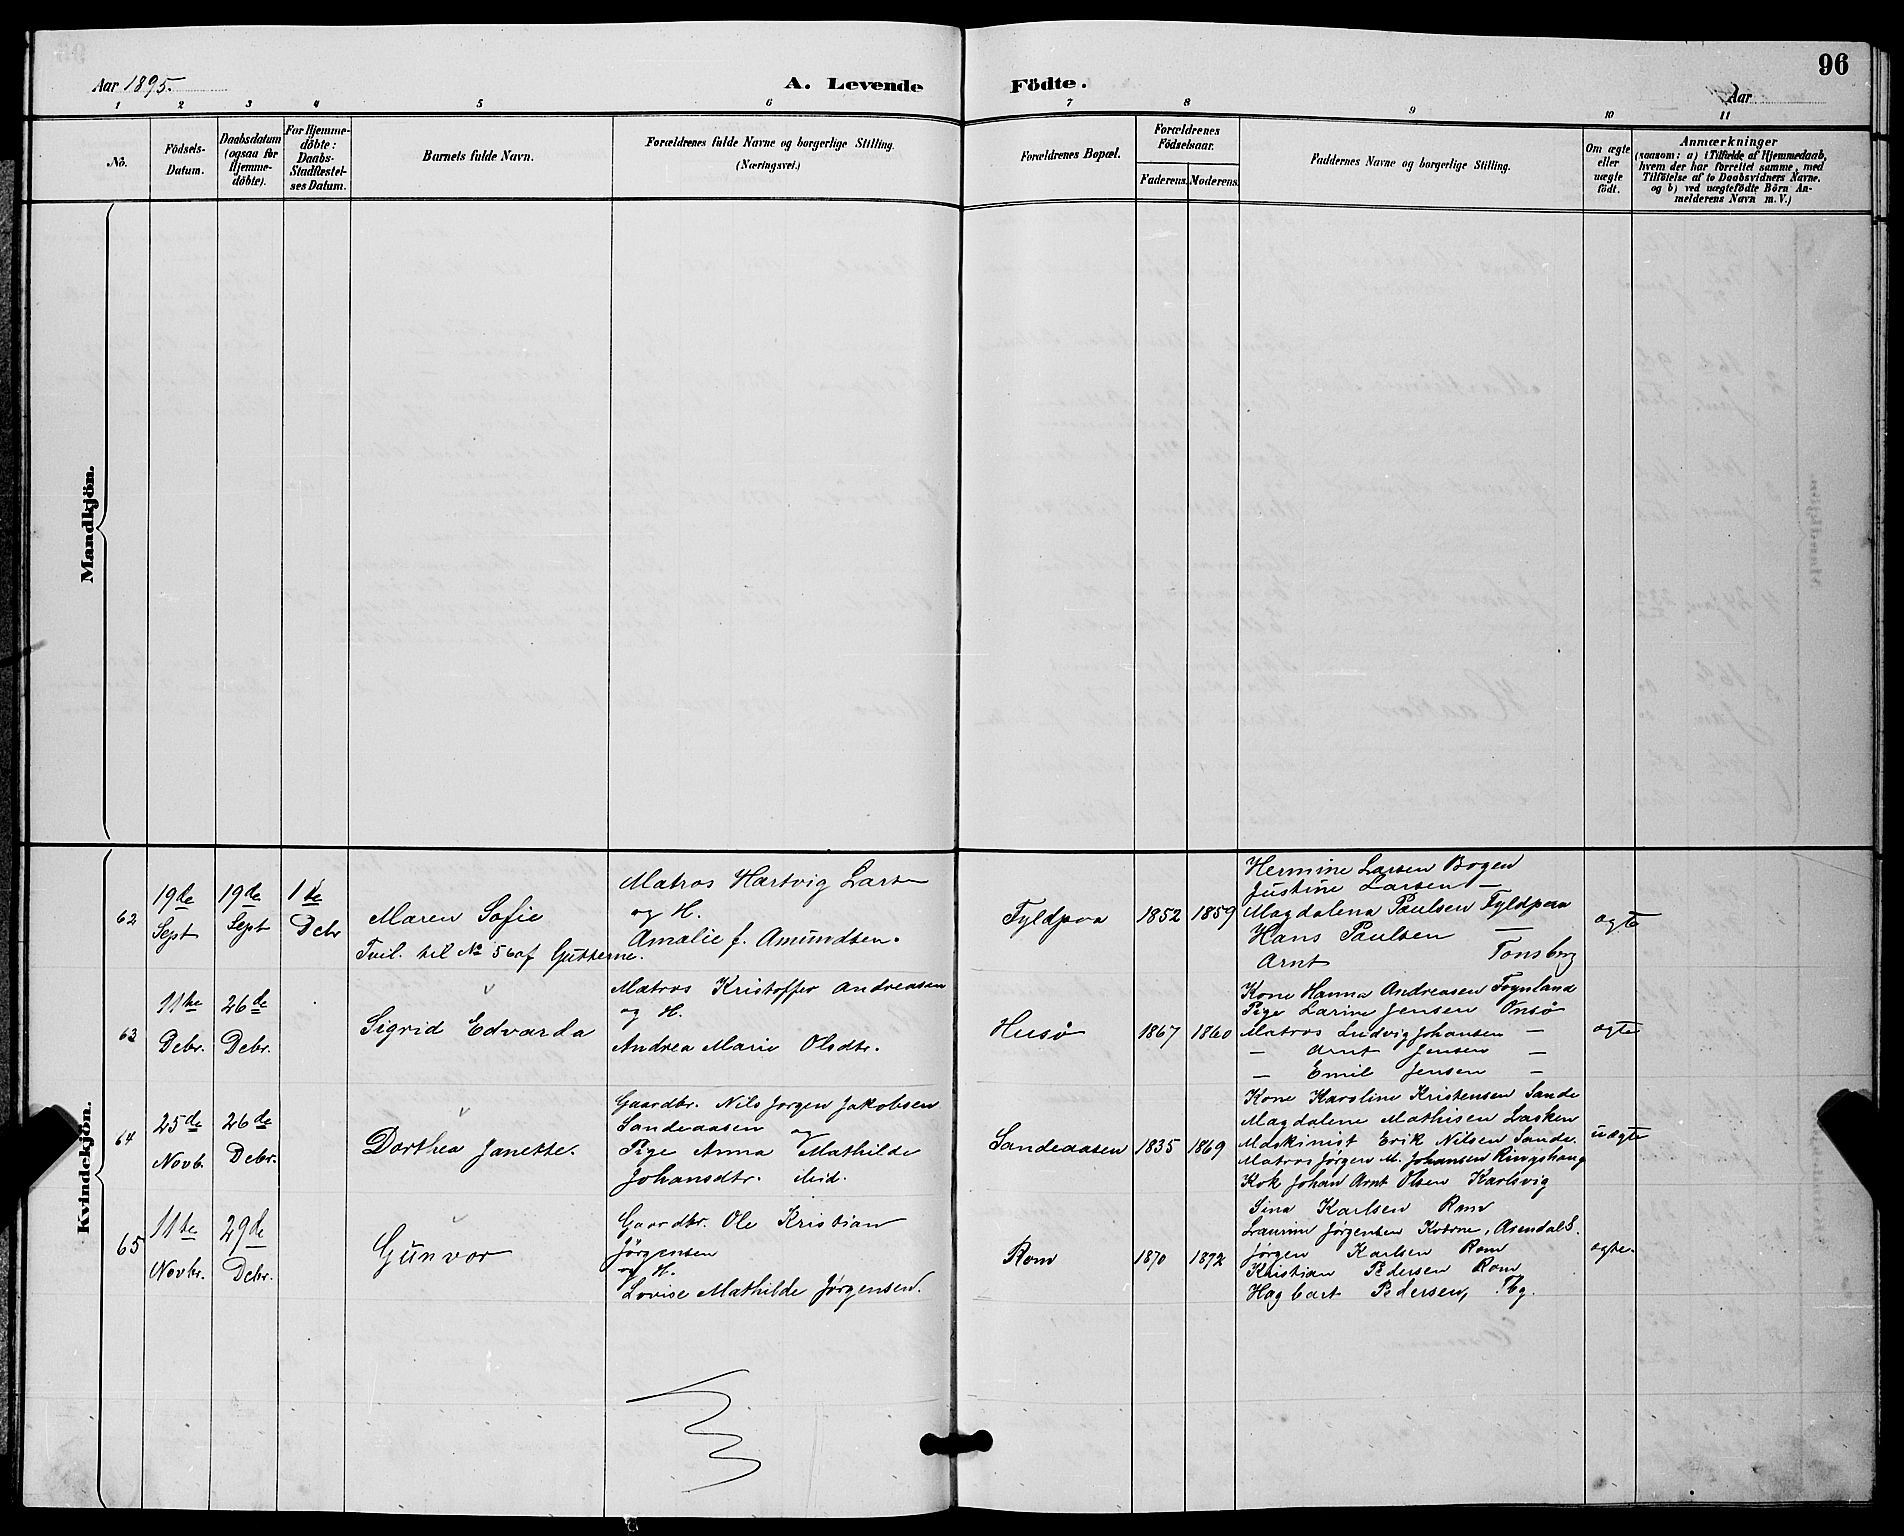 96
Aar 1895.
A. Levende Födte.
Aar
1 2 3 4 5 6 7 8 9 10 11
No.
Födsels-Datum.
Daabsdatum (ogsaa for Hjemme-döbte).
For Hjemme-döbte: Daabs-Stadfæstel-ses Datum.
Barnets fulde Navn.
Forældrenes fulde Navne og borgerlige Stilling. (Næringsvei.)
Forældrenes Bopæl.
Forældrenes Födselsaar.
Faderens. Moderens.
Faddernes Navne og borgerlige Stilling.
Om ægte eller uægte födt.
Anmærkninger
(saasom: a) i Tilfælde af Hjemmedaab,
hvem der har forrettet samme, med
Tilföielse af to Daabsvidners Navne.
og b) ved uægtefödte Börn An-
melderens Navn m. V.)
Mandkjön.
Kvindekjön.
62
19de Sept
19de Sept
1ste Debr
Maren Sofie
Tvil. til No 56 af Gutterne.
Matros Hartvig Larsen
og H.
Amalie f. Amundsen.
Fyldpaa
1852
1859
Hermine Larsen Bogen
Justine Larsen —
Magdalena Paulsen Fyldpaa
Hans Paulsen —
Arnt Tonsberg
ægte
63
11te Debr.
26de Debr.
Sigrid Edvarda
Matros Kristoffer Andreasen
og H.
Andrea Marie Olsdtr.
Husø
1867
1860
Kone Hanna Andreasen Føynland
Pige Larine Jensen Onsø
Matros Ludvig Johansen —
— Arnt Jensen —
— Emil Jensen —
ægte
64
25de Novb.
26de Debr.
Dorthea Janette.
Gaardbr. Nils Jørgen Jakobsen
Sandeaasen og
Pige Anna Mathilde
Johansdtr. ibid.
Sandeaasen
1835
1869
Kone Karoline Kristensen Sande
Magdalene Mathisen Lasken
Maskinist Erik Nilsen Sande.
Matros Jørgen M. Johansen Ringshaug
Kok Johan Arnt Olsen Karlsvig
uægte
65
11te Novbr.
29de Debr.
Gunvor
Gaardbr. Ole Kristian
Jörgensen
og H.
Lovise Mathilde Jørgensen.
Rom
1870
1872
Sina Karlsen Rom
Laurine Jørgensen Kværne, Asendal S.
Jørgen Karlsen Rom
Kristian Pedersen Rom
Hagbart Pedersen, Tbg.
ægte.